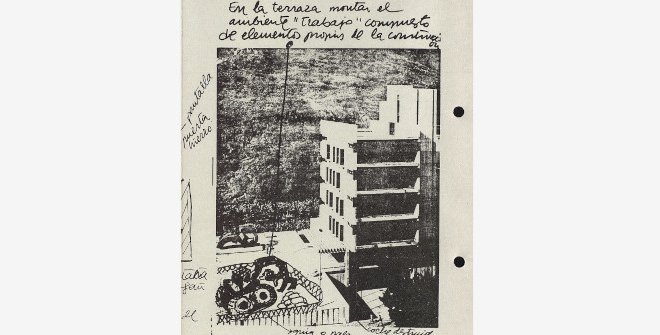 En la terraza montar el
ambiente "trabajo" compuesto
de elementos propios de la construcci
ón
- pantalla
puesta
hierro
el